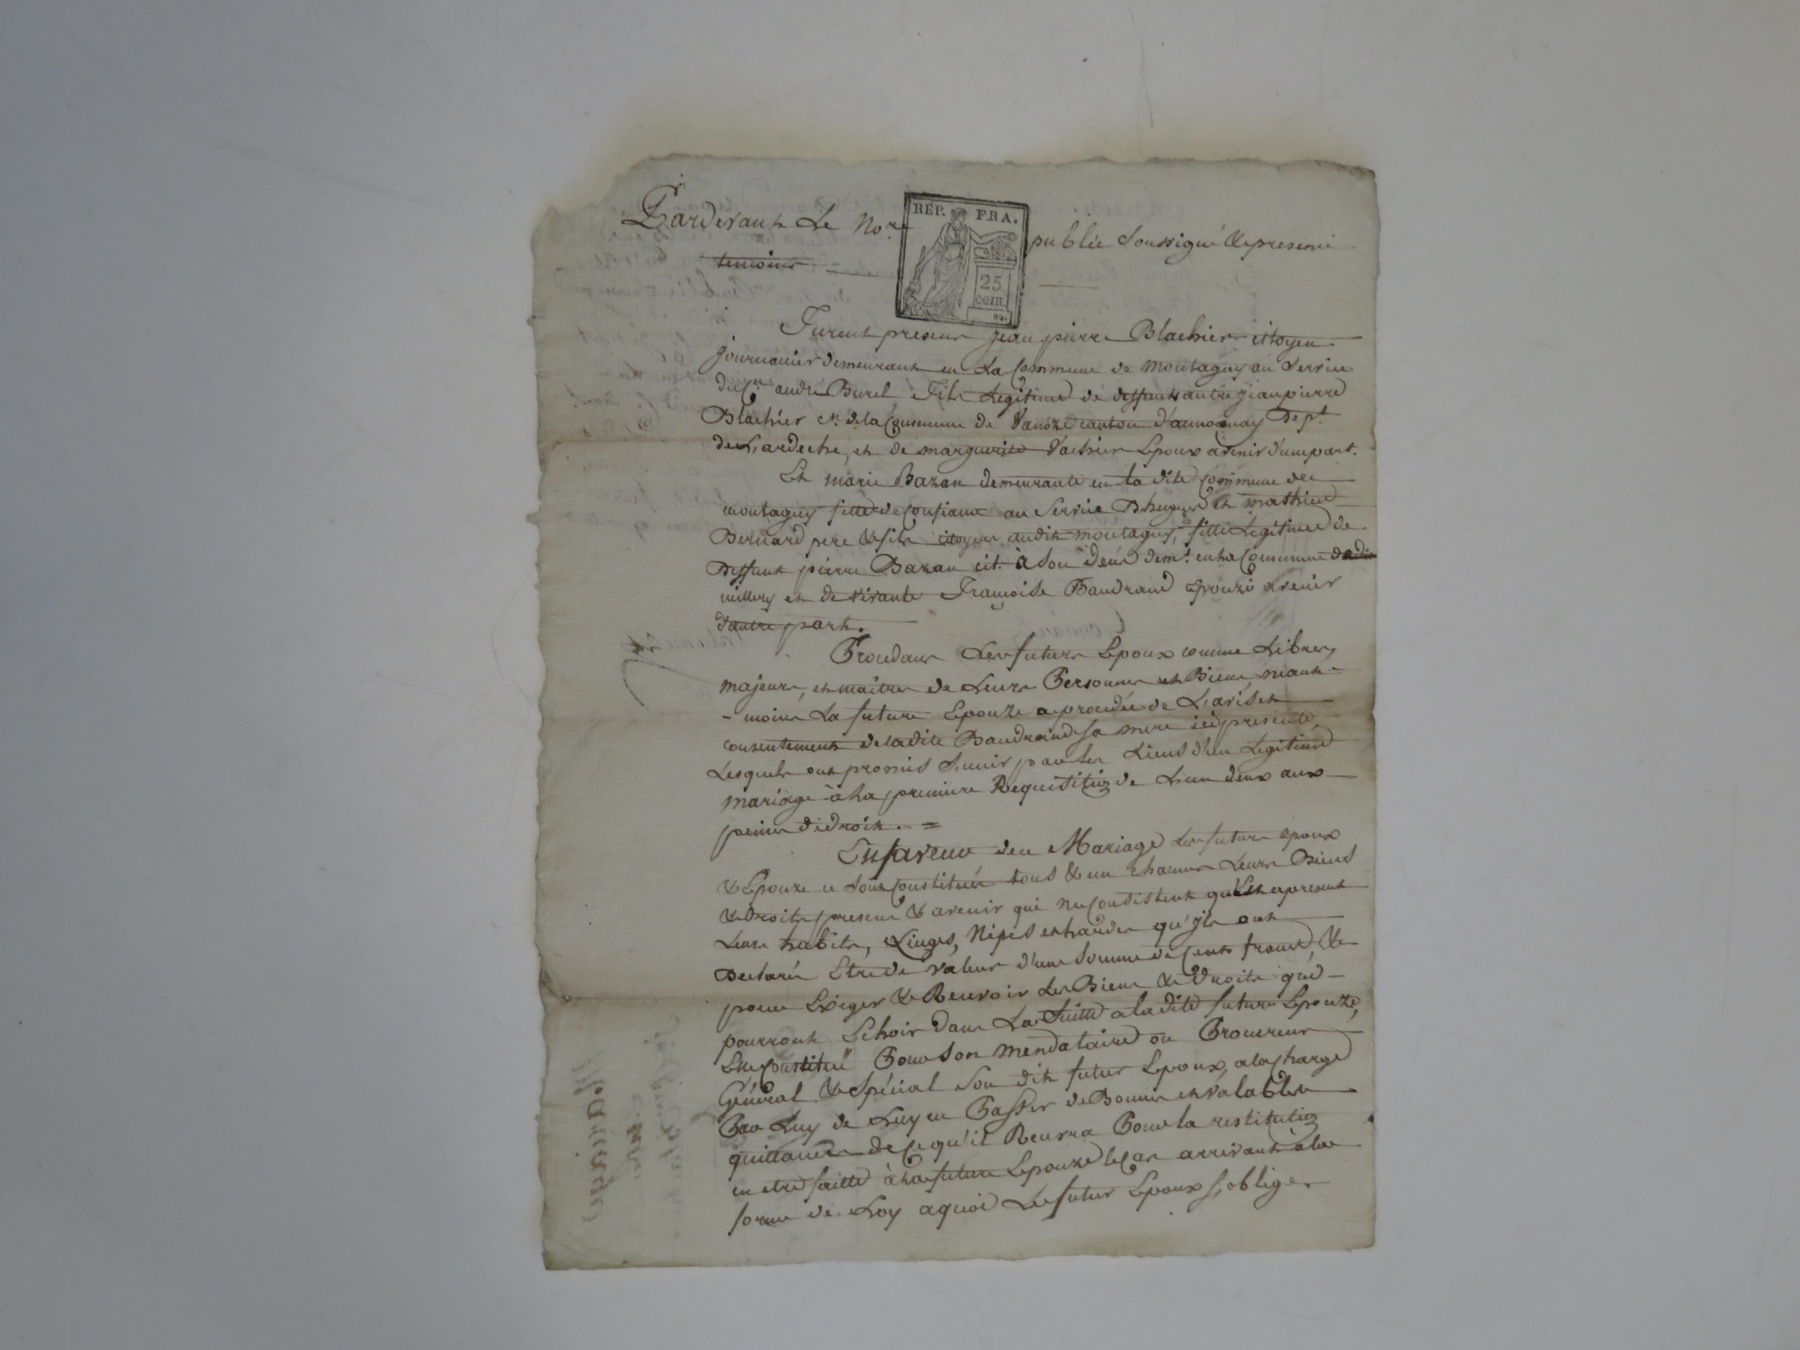 Pardevant Le Nore public soussigné & presents
temoins
REP. FRA.
25
cent.
Furent presens jean pierre Blachier citoyen
journanier demeurant en La Commune de montagny au Service
du Cn andré Burel, Fils Legitime de deffunt autre jean pierre
Blachier cn. de la Commune de Vanoze canton d'annonay Dept.
de L'ardeche, et de marguerite Vachier Epoux avenir d'une part.
Et marie Bazan demeurante en la dite Commune de
montagny fille de confiance au Service D'hugues et mathieu
Bernard pere & fils citoyens dudit montagny, fille Legitime de
Deffunt pierre Bazan cit. à son deces demt. en la Commune de
millery et de vivante Françoise Baudrand Epouze avenir
d'autre part.
Procedans Les futurs Epoux comme Libres,
majeurs, et maitres de Leurs Personnes et Biens, neant
- moins La future Epouze a procedée de L'avis et
consentement de ladite Baudrand sa mere icy presente
Lesquels ont promis s'unir par les Liens d'un Legitime
mariage à la premiere Requisition de L'un deux aux
peines de droit. =
En faveur du Mariage Les futurs epoux
& Epouze se sont constitués tous & un chacun Leurs Biens
& droits presens & avenir qui ne consistent quant apresent
Leurs habits, Linges, Nipes et hardes qu'ils ont
Declarés Etre de valeur d'une somme de Cent francs, &
pour Exiger & Recevoir Les Biens & Droits qui
pourront Echoir dans La Suitte a la dite future Epouze,
Elle constitue Pour son mendataire ou Procureur
Général & Spécial son dit futur Epoux, a la charge
Par Luy de Luy en Passer de Bonnes et valables
quittances de ce qu'il Recevra Pour la restitution
en etre faitte à la future Epouze le cas arrivant à la
forme de Loy a quoi Le futur Epoux s'oblige